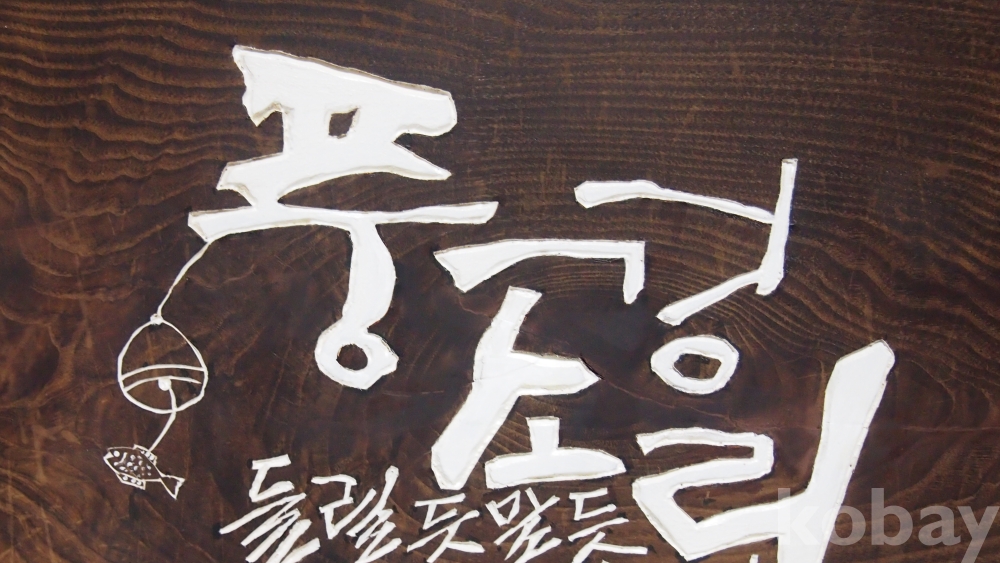 풍경
소리
들릴 듯 말 듯
kobay